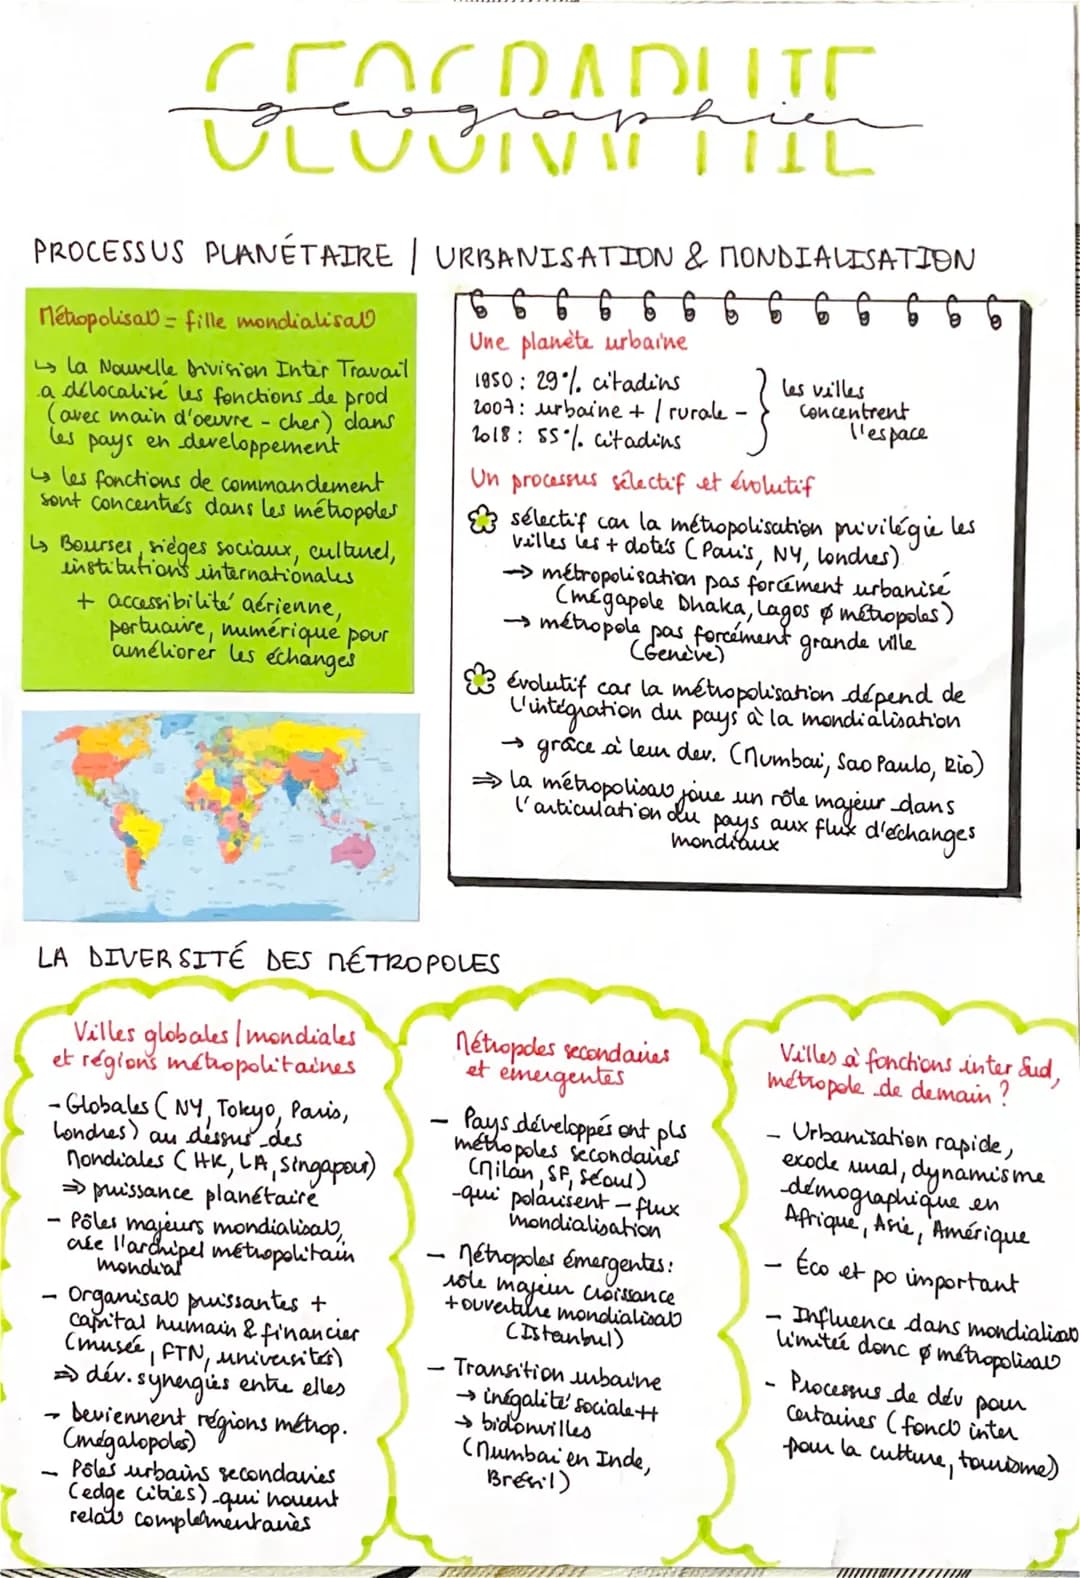 GEOGRAPHIE
geographie
PROCESSUS PLANÉTAIRE / URBANISATION & MONDIALISATION
Métropolisato = fille mondialisato
↳ la Nouvelle Division Inter Travail
a délocalisé les fonctions de prod
(avec main d'oeuvre - cher) dans
les pays en developpement
↳ les fonctions de commandement
sont concentrés dans les métropoles
↳ Bourses, sièges sociaux, culturel,
institutions internationales
+ accessibilité aérienne,
portuaire, numérique pour
améliorer les échanges
Une planète urbaine
1850 : 29% citadins
2007 : urbaine + / rurale -
2018 : 55% citadins
les villes
concentrent
l'espace
Un processus sélectif et évolutif
sélectif car la métropolisation privilégie les
villes les + dotés (Paris, NY, Londres)
→ métropolisation pas forcément urbanisé
(mégapole Dhaka, Lagos ø métropoles)
→ métropole pas forcément grande ville
(Genève)
évolutif car la métropolisation dépend de
l'intégration du pays à la mondialisation
→ grâce à leur dev. (Mumbai, Sao Paulo, Rio)
⇒ la métropolisato joue un rôle majeur dans
l'articulation du pays aux flux d'échanges
mondiaux
LA DIVERSITÉ DES MÉTROPOLES
Villes globales / mondiales
et régions métropolitaines
- Globales (NY, Tokyo, Paris,
Londres) au dessus des
Mondiales (HK, LA, Singapour)
⇒ puissance planétaire
- Pôles majeurs mondialisato,
crée l'archipel métropolitain
mondial
- Organisato puissantes +
capital humain & financier
(musée, FTN, universités)
⇒ dév. synergies entre elles
- Deviennent régions métrop.
(mégalopoles)
- Pôles urbains secondaires
(edge cities) qui nouent
relato complémentaires
Métropoles secondaires
et émergentes
- Pays développés ont pls
métropoles secondaires
(Milan, SF, Séoul)
-qui polarisent - flux
mondialisation
- Métropoles émergentes :
rôle majeur croissance
+ ouverture mondialisato
(Istanbul)
- Transition urbaine
→ inégalité sociale ++
→ bidonvilles
(Mumbai en Inde,
Brésil)
Villes à fonctions inter Sud,
métropole de demain ?
- Urbanisation rapide,
exode rural, dynamisme
démographique en
Afrique, Asie, Amérique
- Éco et po important
- Influence dans mondialisato
limitée donc ø métropolisato
- Processus de dév pour
certaines (foncto inter
pour la culture, tourisme)